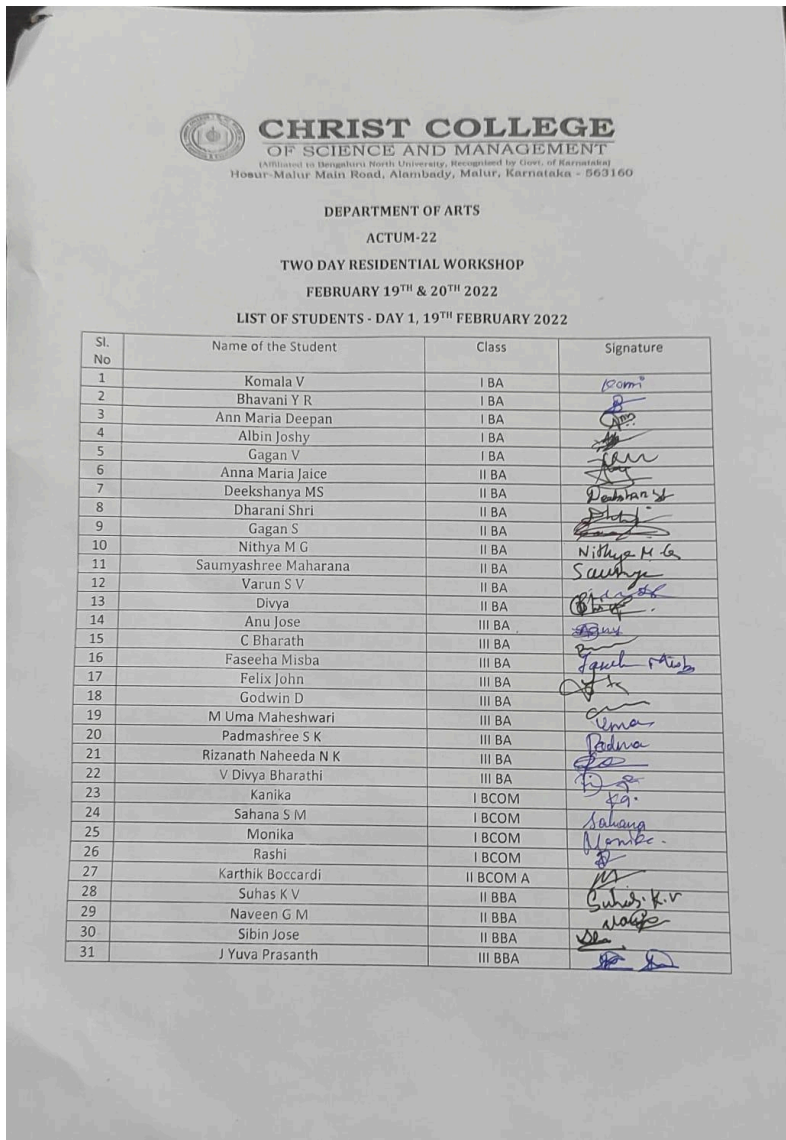 CHRIST COLLEGE
OF SCIENCE AND MANAGEMENT
(Affiliated to Bengaluru North University, Recognised by Govt. of Karnataka)
Hosur-Malur Main Road, Alambady, Malur, Karnataka - 563160
DEPARTMENT OF ARTS
ACTUM-22
TWO DAY RESIDENTIAL WORKSHOP
FEBRUARY 19TH & 20TH 2022
LIST OF STUDENTS - DAY 1, 19TH FEBRUARY 2022
Sl. No Name of the Student Class Signature
1 Komala V I BA
2 Bhavani Y R I BA
3 Ann Maria Deepan I BA
4 Albin Joshy I BA
5 Gagan V I BA
6 Anna Maria Jaice II BA
7 Deekshanya MS II BA
8 Dharani Shri II BA
9 Gagan S II BA
10 Nithya M G II BA Nithya M G
11 Saumyashree Maharana II BA
12 Varun S V II BA
13 Divya II BA
14 Anu Jose III BA
15 C Bharath III BA
16 Faseeha Misba III BA
17 Felix John III BA
18 Godwin D III BA
19 M Uma Maheshwari III BA Uma
20 Padmashree S K III BA Padma
21 Rizanath Naheeda N K III BA
22 V Divya Bharathi III BA
23 Kanika I BCOM
24 Sahana S M I BCOM Sahana
25 Monika I BCOM Monika
26 Rashi I BCOM
27 Karthik Boccardi II BCOM A
28 Suhas K V II BBA Suhas. K.V
29 Naveen G M II BBA
30 Sibin Jose II BBA
31 J Yuva Prasanth III BBA